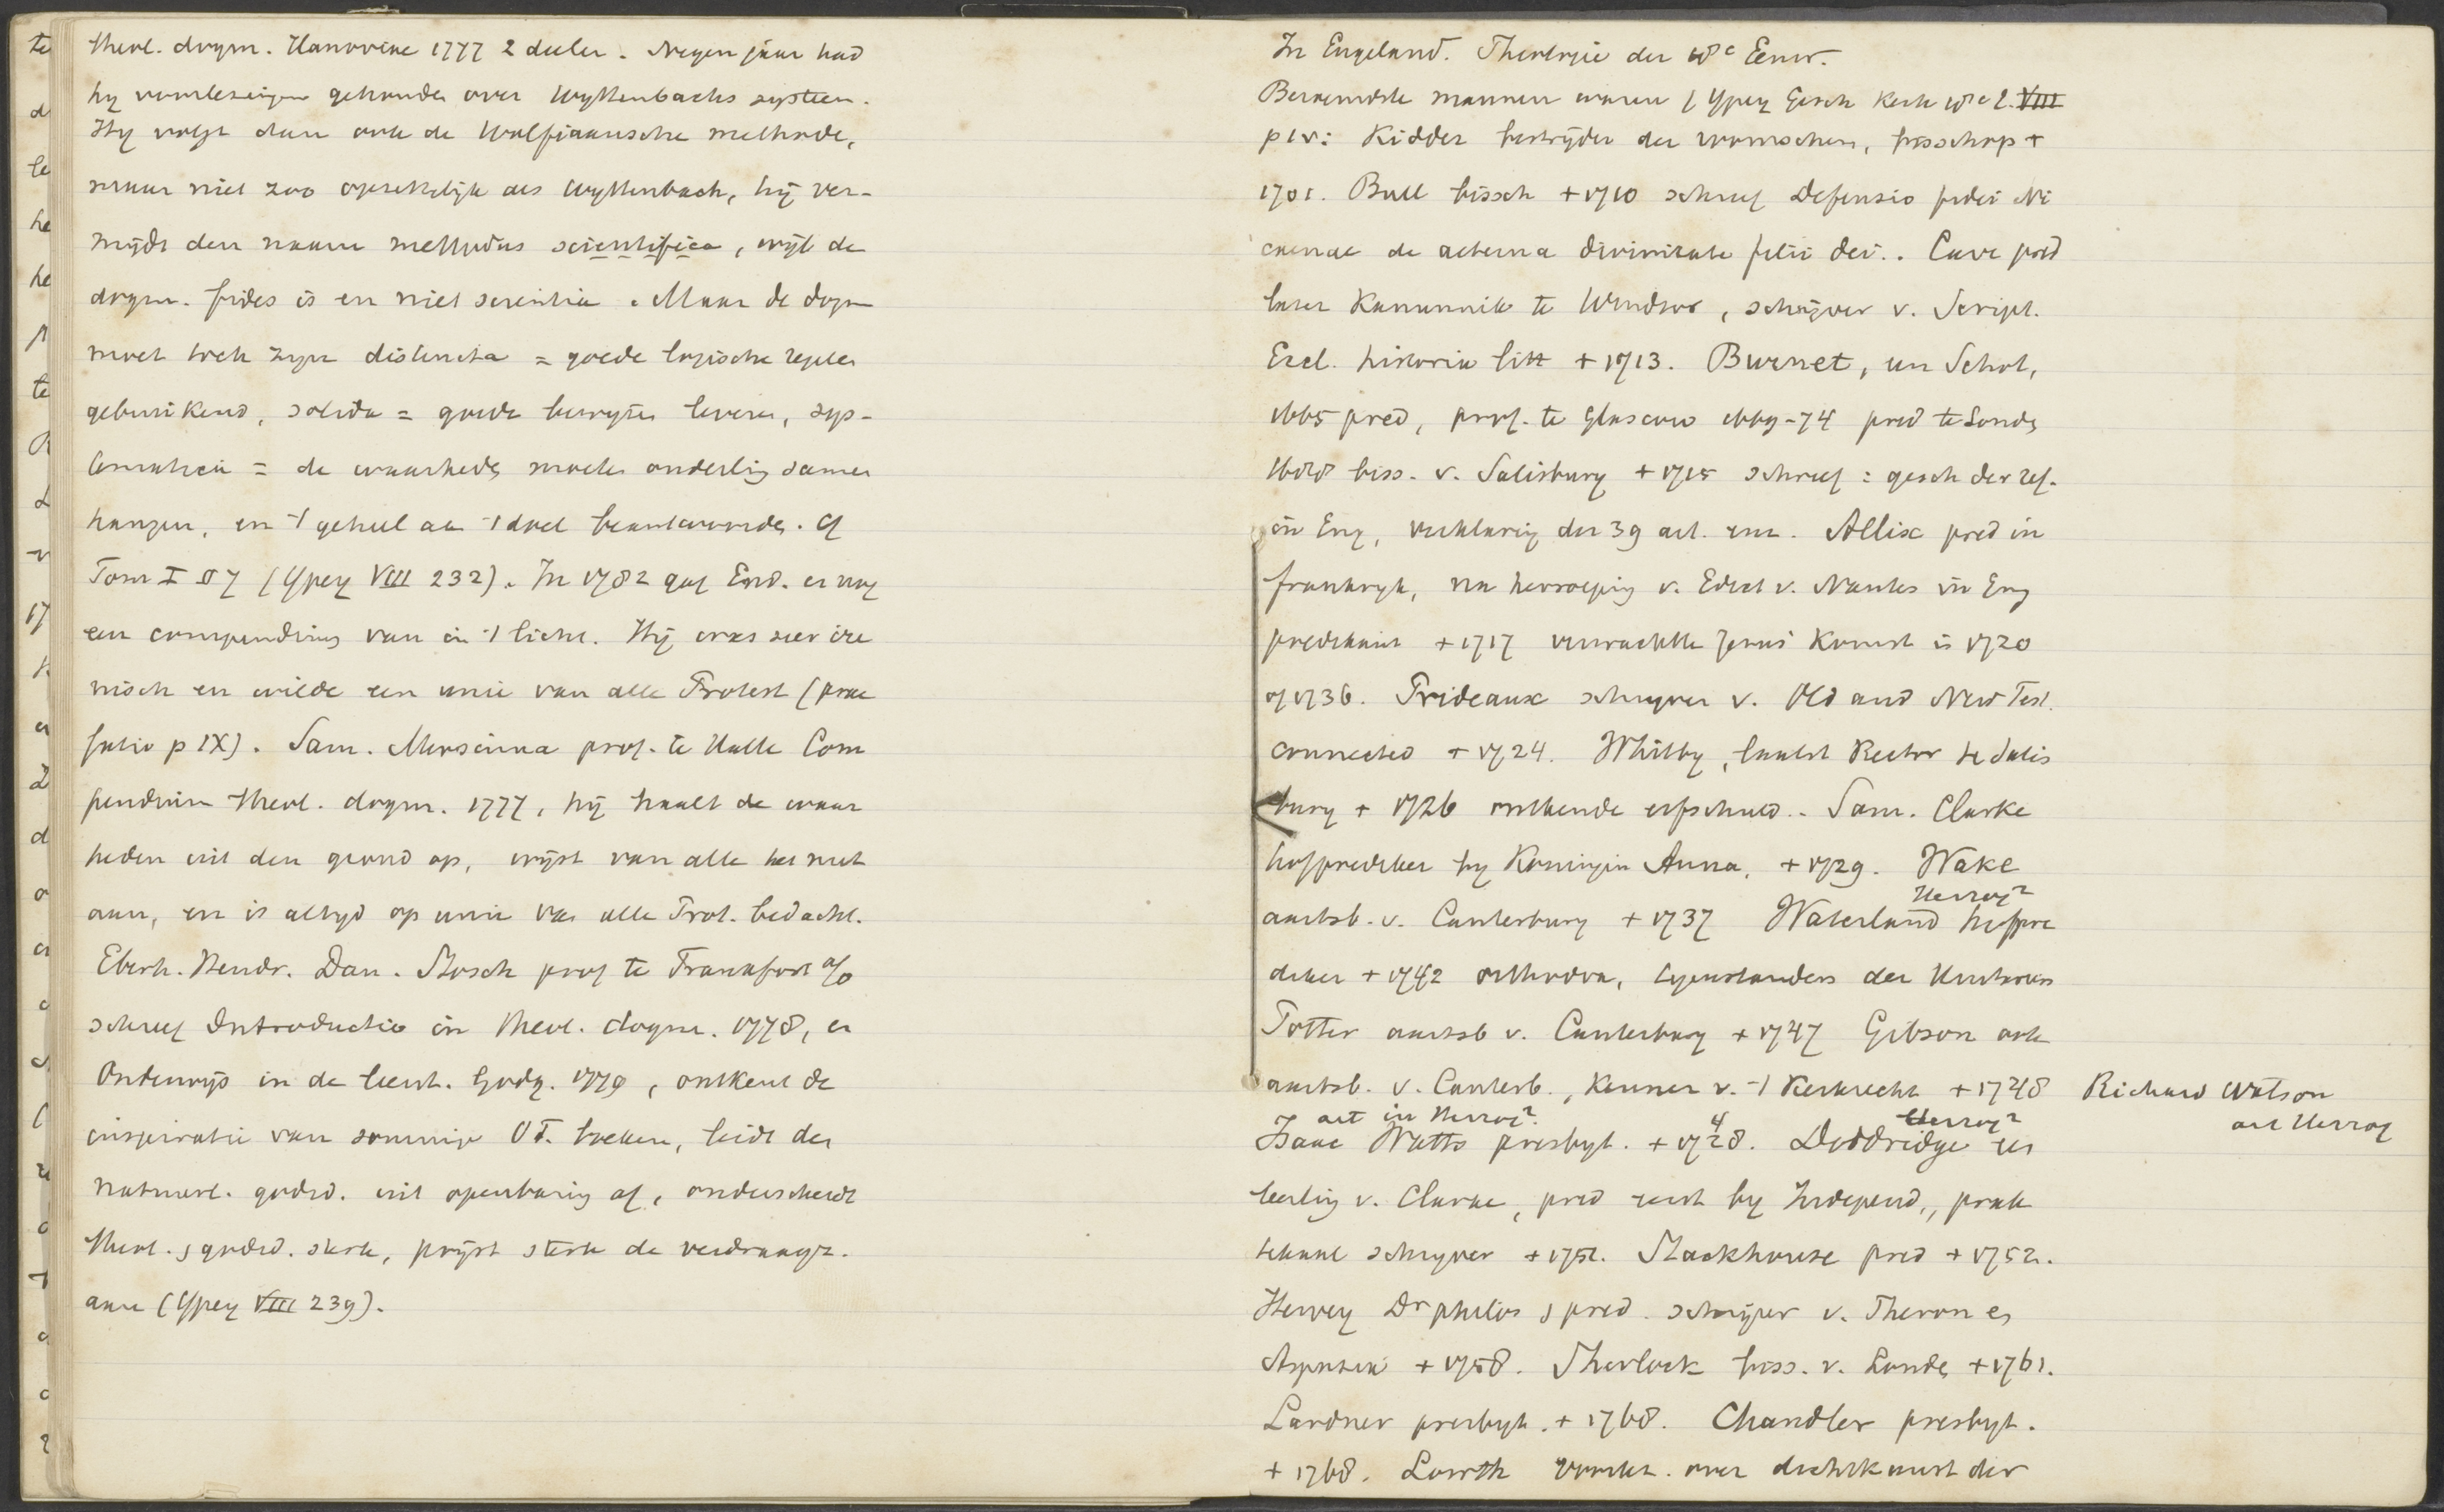 theol. dogm. Hanoviae 1777 2 deelen. Negen jaar had
hy voorlezingen gehouden over Wyttenbachs systeem.
Hy volgt dan ook de Wolfiaansche methode,
maar niet zoo opzettelijk als Wyttenbach, hij ver-
mijdt den naam methodus scientifica, wijl de
dogm. fides is en niet scientia. Maar de dogm
moet toch zyn distincta = goede logische regelen
gebruikend, solida = goede bewyzen leveren, sys-
tematica = de waarheden moeten onderling samen
hangen, en 't geheel aan 't doel beantwoorden. Cf
Tom I § 7 (Ypey VIII 232). In 1782 gaf End. er nog
een compendium van in 't licht. Hij was zeer ire
nisch en wilde een unie van alle Protest (prae
fatio p IX). Sam. Mursinna prof. te Halle Com
pendium theol. dogm. 1777, hij haalt de waar
heden uit den grond op, wijst van alle het nut
aan, en is altyd op unie van alle Prot. bedacht.
Eberh. Hendr. Dan. Stosch prof te Frankfort a/o
schreef Introductio in theol. dogm. 1778, en
Onderwijs in de leerst. Godg. 1779, ontkent de
inspiratie van sommige OT. boeken, leidt den
natuurl. godsd. uit openbaring af, onderscheidt
theol. & godsd. sterk, prijst sterk de verdraagz.
aan (Ypey VIII 239).
In Engeland. Theologie der 18e Eeuw.
Beroemdste mannen waren (Ypey Gesch Kerk 18e e. VIII
p 1v: Kidder bestrijder der , bisschop +
1701. Bull bissch +1710 schreef Defensio fidei Ni
caenae de aeterna divinitate filii dei.. Cave pred
later Kanunnik te Windsor, schrijver v. Script.
Eccl. historia litt +1713. Burnet, een Schot,
1665 pred, prof. te Glascow 1669-74 pred te Londen
1688 biss. v. Salisbury +1715 schreef: gesch der ref.
in Eng, verklaring der 39 art. enz. Allix pred in
frankryk, na herroeping v. Edict v. Nantes in Eng
predikant +1717 verwachtte Jezus' Komst in 1720
of 1736. Prideaux schryver v. Old and New Test.
connected +1724. Whitby, laatst Rector te Salis
bury + 1726 ontkende erfschuld.. Sam. Clarke
hofprediker by Koningin Anna, +1729. Wake
aartsb. v. Canterbury +1737 Waterland hofpre
Herzog²
diker +1742 orthodox, tegenstander der
Potter aartsb v. Canterbury +1747 Gibson ook
aartsb. v. Canterb., kenner v. 't Kerkrecht +1748 Richard Watson
art Herzog
art in Herzog². 4 Herzog²
Isaac Watts presbyt. +1728. Doddridge een
leerling v. Clarke, pred eerst by Independ., prak
tikaal schryver +1751. Stackhouse pred +1752.
Hervey Dr philos & pred. schrijver v. Theron en
Aspasia +1758. Sherlock biss. v. Londen +1761.
Lardner presbyt. +1768. Chandler presbyt.
+1768. Lowth voorlez. over dichtkunst der